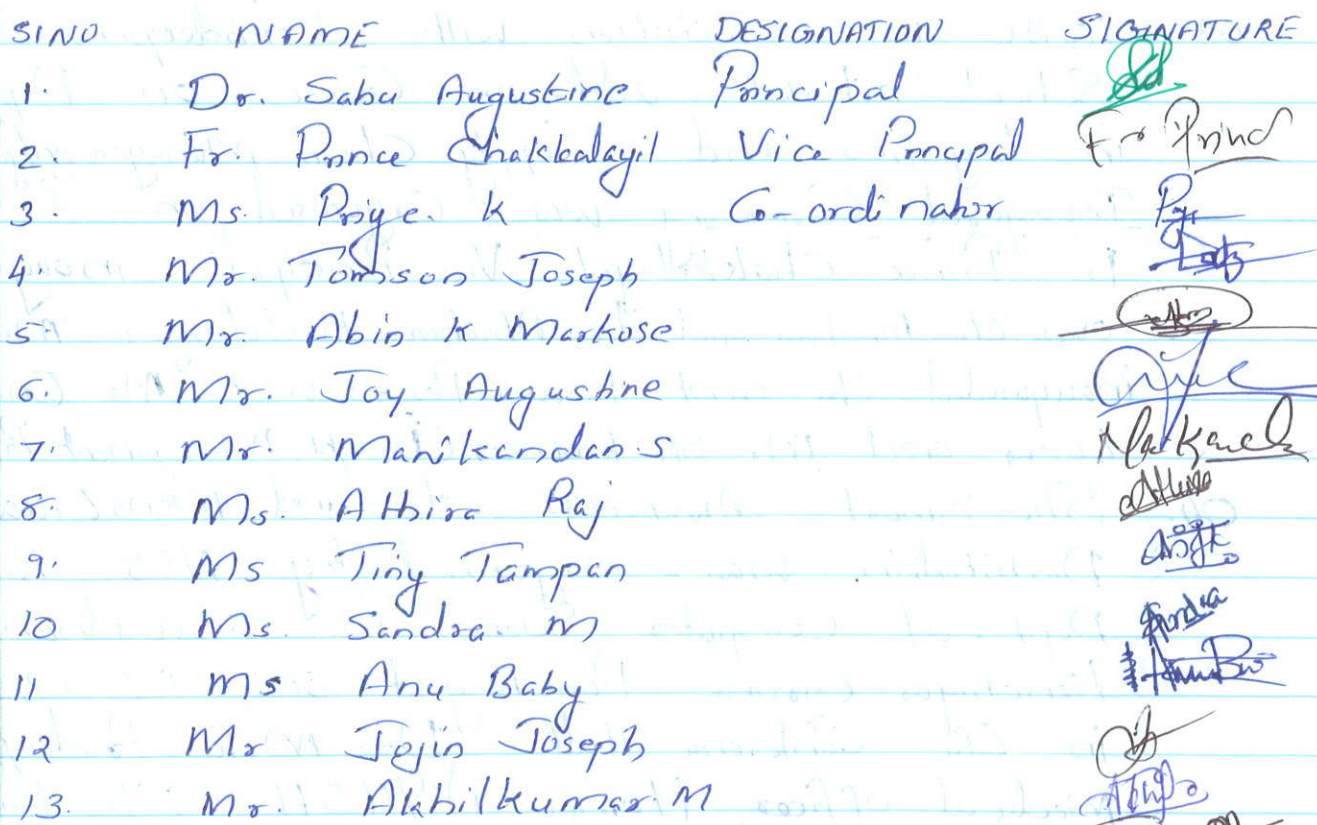 SINO NAME DESIGNATION SIGNATURE
1. Dr. Sabu Augustine Principal
2. Fr. Prince Chakkalayil Vice Principal Fr Prince
3. Ms. Priya. K Co-ordinator
4. Mr. Tomson Joseph
5 Mr. Abin K Markose
6. Mr. Joy Augustine
7. Mr. Manikandan.S
8. Ms. Athira Raj Athira
9. Ms Tiny Tampan
10 Ms. Sandra. M Sandra
11 Ms Anu Baby
12 Mr Jejin Joseph
13. Mr. Akhilkumar.M